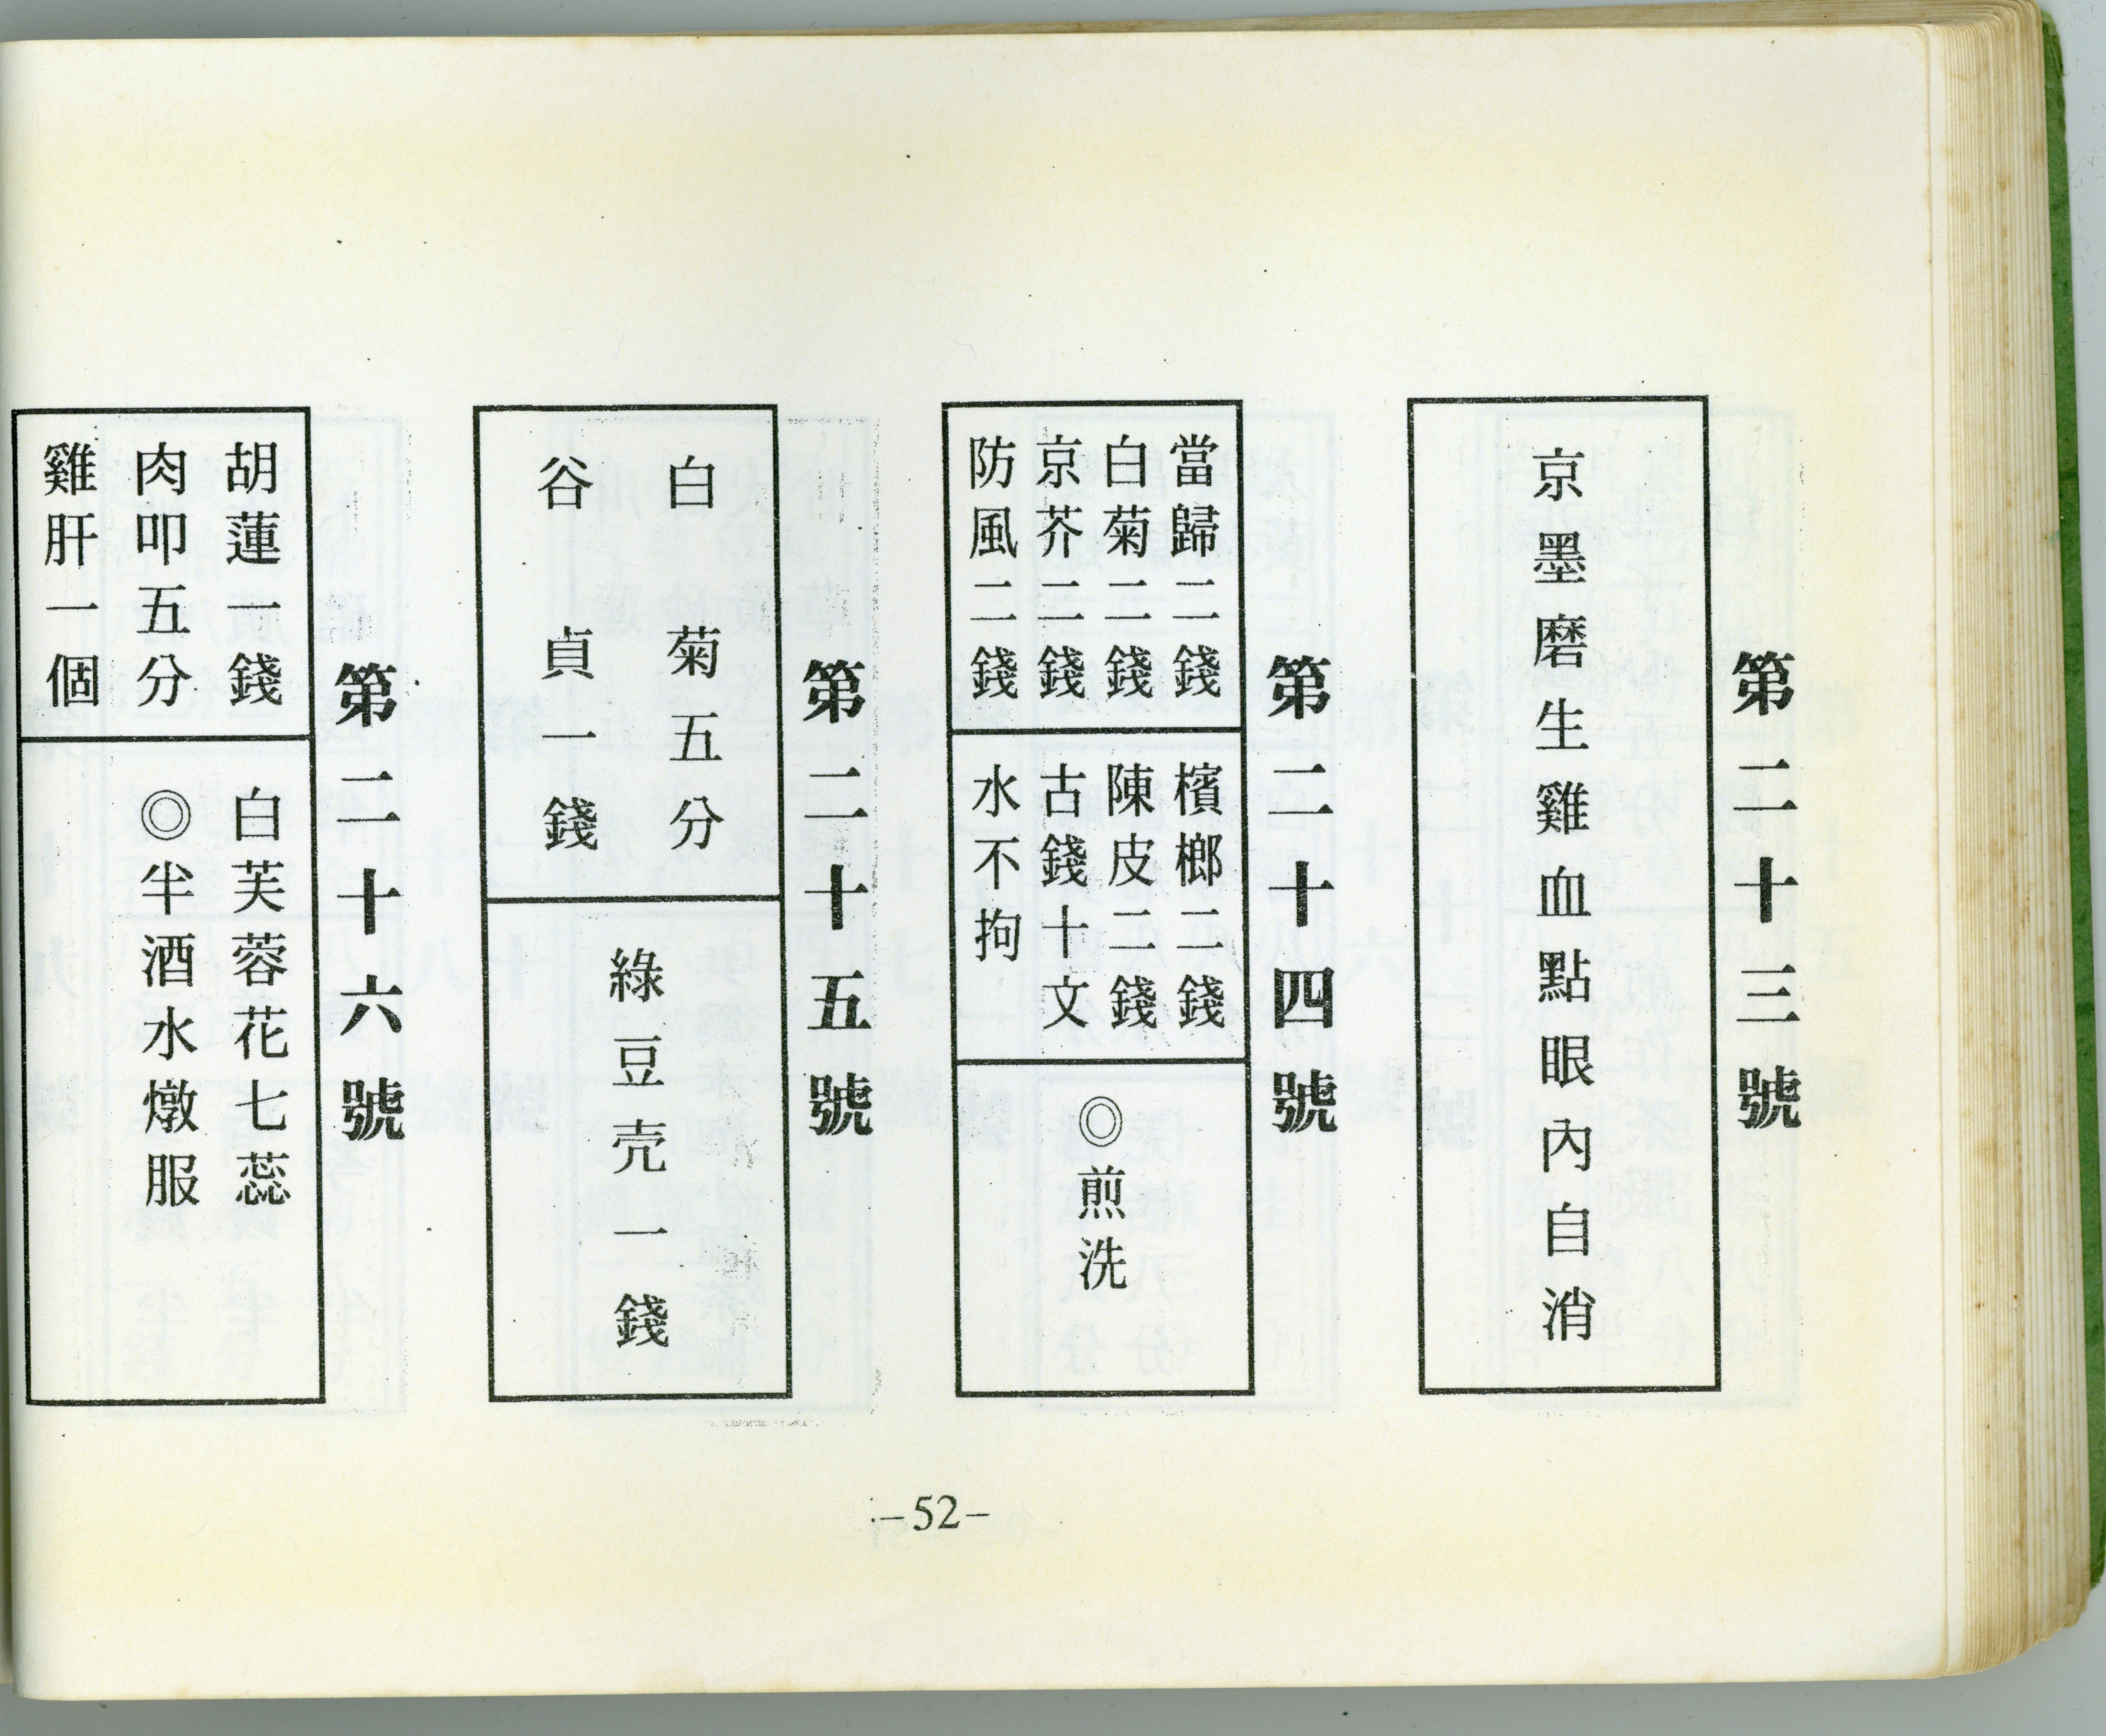 第二十三號
京墨磨生雞血點眼內自消
第二十四號
當歸二錢
白菊二錢
京芥二錢
防風二錢
檳榔二錢
陳皮二錢
古錢十文
水不拘
◎煎洗
第二十五號
白菊五分
谷貞一錢
綠豆壳一錢
第二十六號
胡蓮一錢
肉叩五分
雞肝一個
白芙蓉花七蕊
◎半酒水燉服
-52-